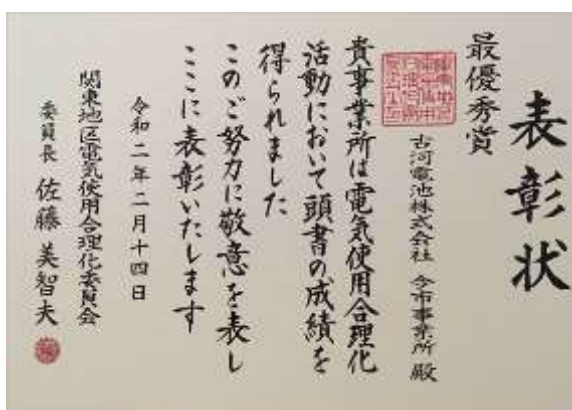 表彰状
最優秀賞
古河電池株式会社 今市事業所 殿
貴事業所は電気使用合理化
活動において頭書の成績を
得られました
このご努力に敬意を表し
ここに表彰いたします
令和二年二月十四日
関東地区電気使用合理化委員会
委員長 佐藤美智夫